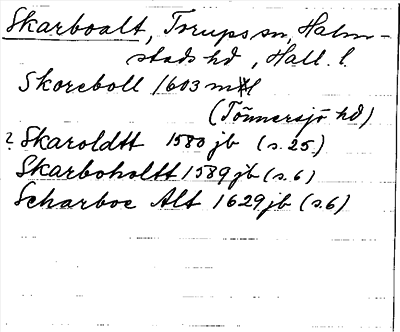 Skarboalt, Torups sn, Halm-
stads hd, Hall. l.
Skoreboll 1603 ml
(Tönnersjö hd)
? Skaroldtt 1580 jb (s. 25.)
Skarboholtt 1589 jb (s. 6)
Scharboe Alt 1629 jb (s. 6)